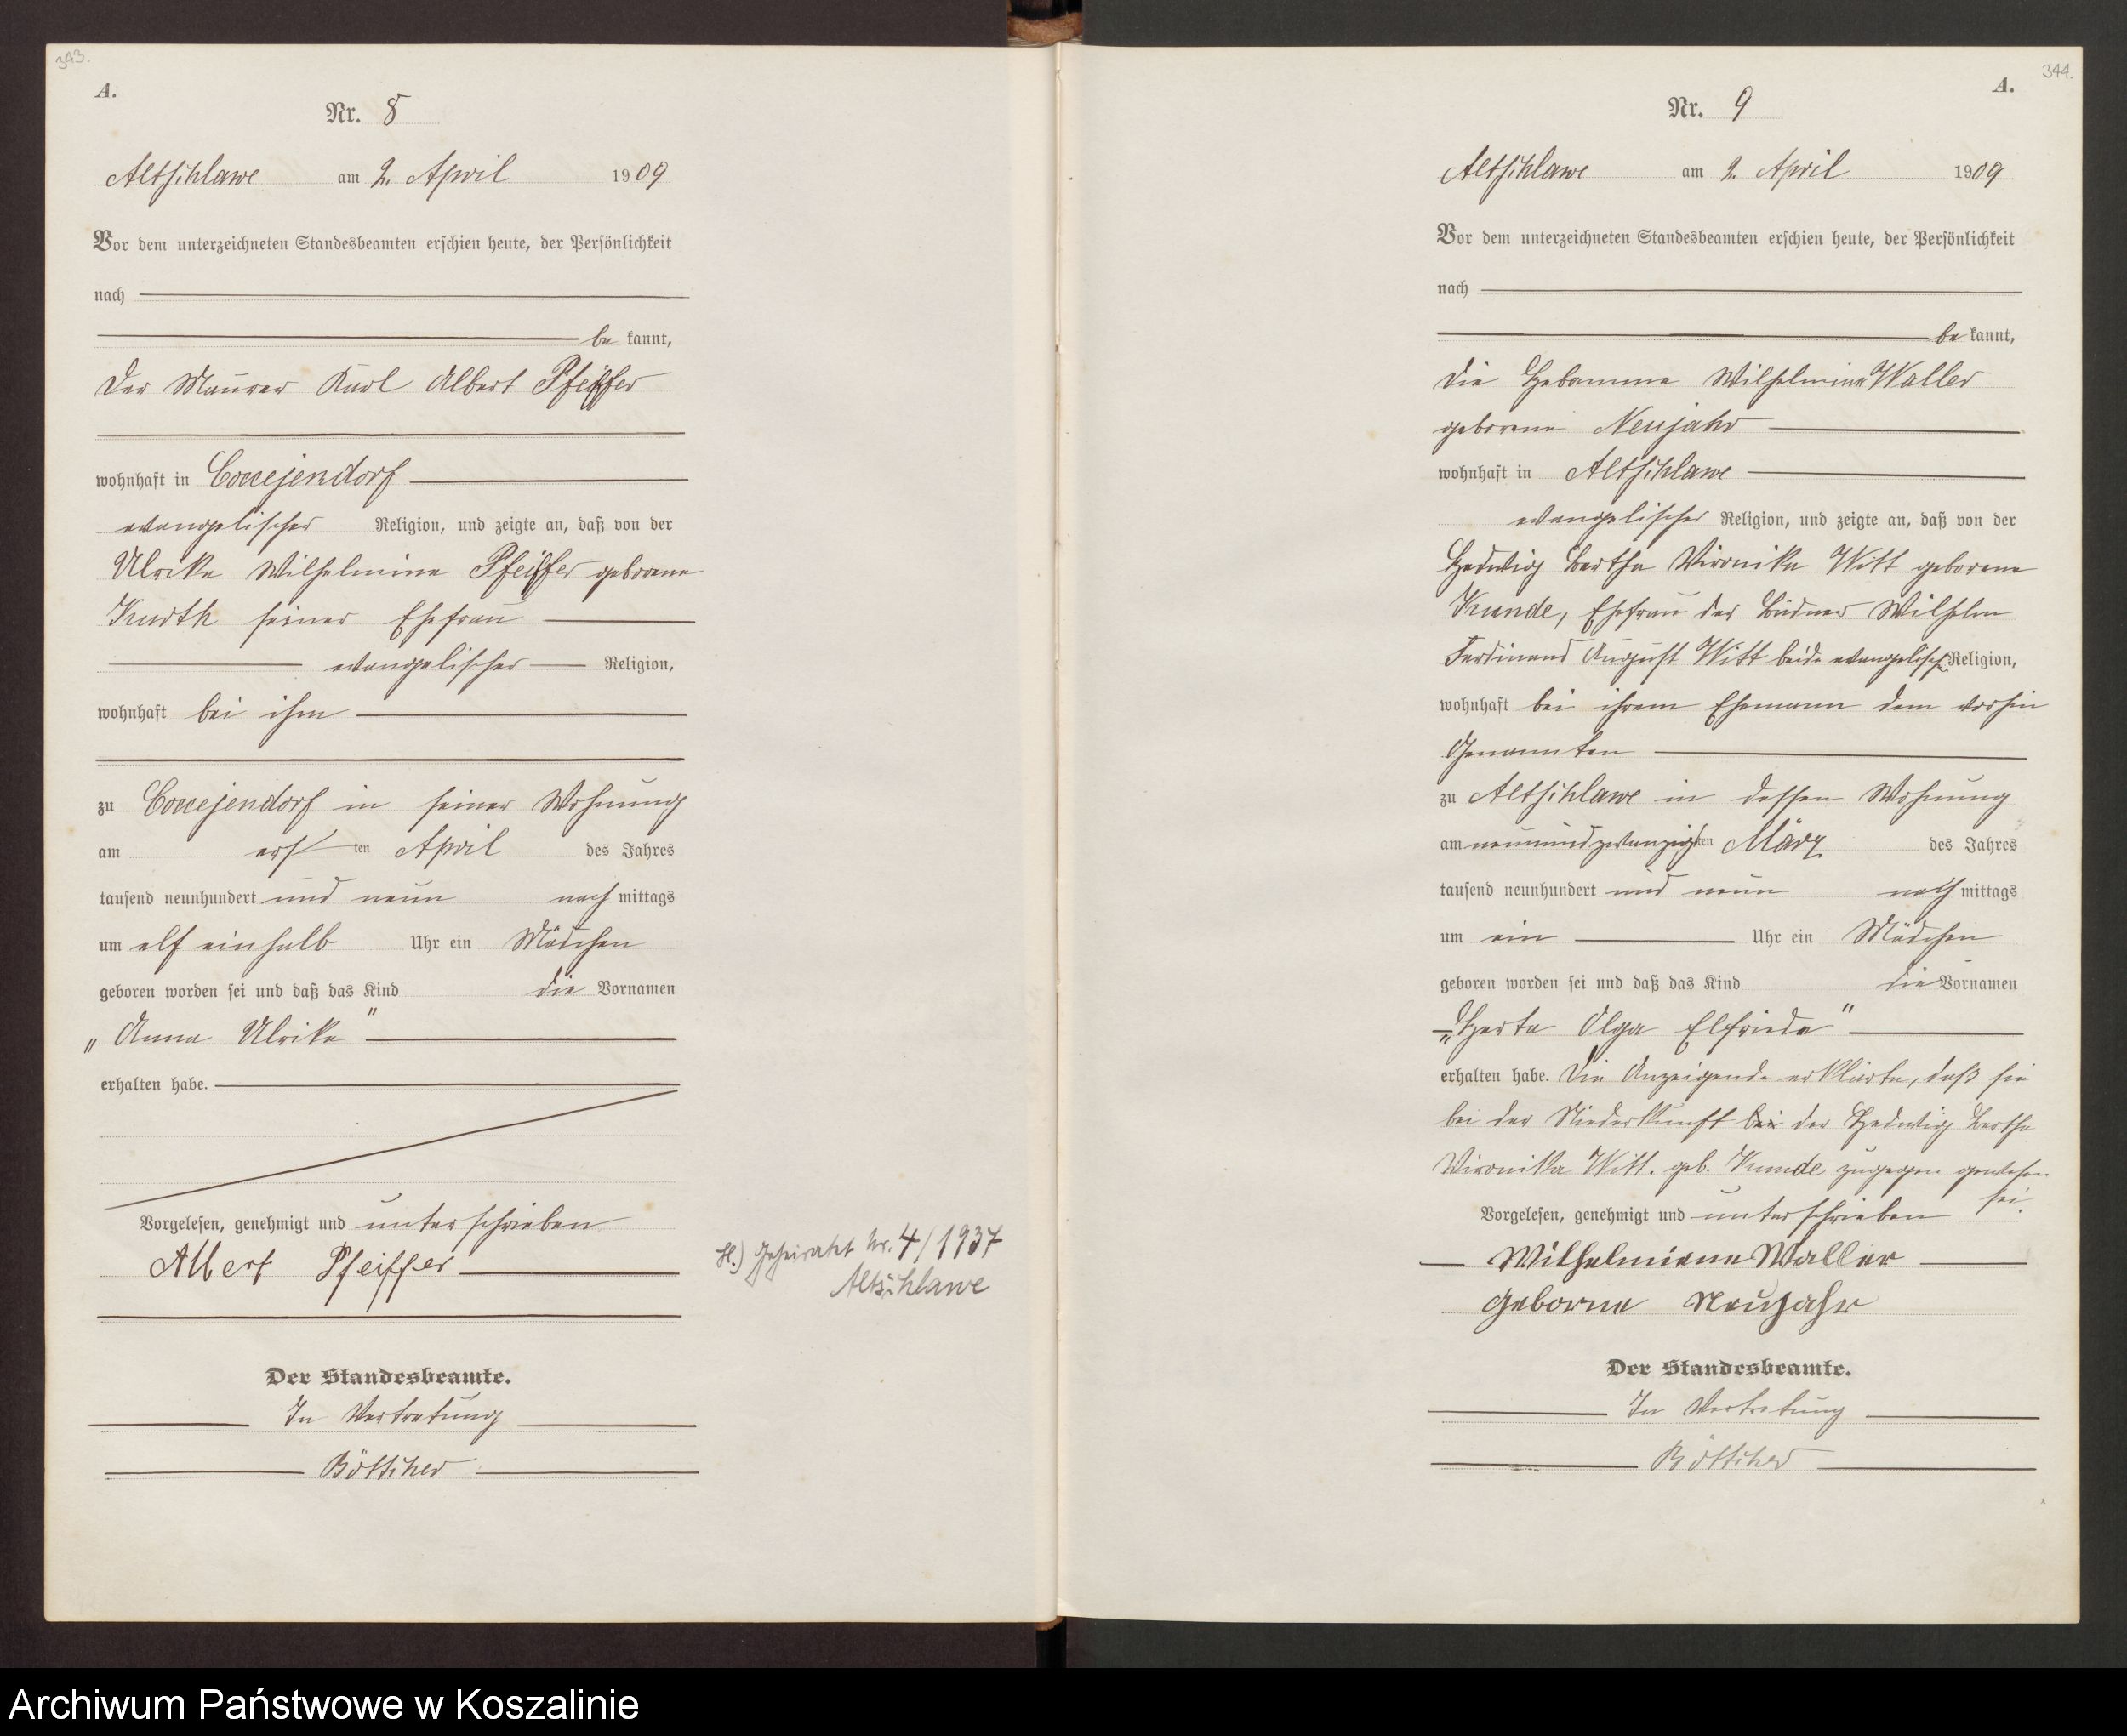 343.
A.
Nr. 8
Altschlawe am 2. April 1909
Vor dem unterzeichneten Standesbeamten erschien heute, der Persönlichkeit
nach
be kannt,
Der Maurer Karl Albert Pfeiffer
wohnhaft in Coccejendorf
evangelischer Religion, und zeigte an, daß von der
Ulrike Wilhelmine Pfeiffer geborene
Kurth seiner Ehefrau
evangelischer Religion,
wohnhaft bei ihm
zu Coccejendorf in seiner Wohnung
am ersten April des Jahres
tausend neunhundert und neun nach mittags
um elf einhalb Uhr ein Mädchen
geboren worden sei und daß das Kind die Vornamen
„Anna Ulrike"
erhalten habe.
Vorgelesen, genehmigt und unterschrieben
Albert Pfeiffer
H.) Geheiratet Nr. 4/1937
Altschlawe
Der Standesbeamte.
In Vertretung
Böttcher
344.
A.
Nr. 9
Altschlawe am 2. April 1909
Vor dem unterzeichneten Standesbeamten erschien heute, der Persönlichkeit
nach
be kannt,
die Hebamme Wilhelmine Waller
geborene Neujahr
wohnhaft in Altschlawe
evangelischer Religion, und zeigte an, daß von der
Hedwig Bertha Vironika Witt geborene
Kunde, Ehefrau des Büdner Wilhelm
Ferdinand August Witt beide evangelisch Religion,
wohnhaft bei ihrem Ehemann dem vorhin
Genannten
zu Altschlawe in dessen Wohnung
am neunundzwanzigsten März des Jahres
tausend neunhundert und neun nach mittags
um ein Uhr ein Mädchen
geboren worden sei und daß das Kind die Vornamen
„Herta Olga Elfriede"
erhalten habe. Die Anzeigende erklärte, daß sie
bei der Niederkunft bei der Hedwig Bertha
Vironika Witt. geb. Kunde zugegen gewesen
sei.
Vorgelesen, genehmigt und unterschrieben
Wilhelmiene Waller
geborne Neujahr
Der Standesbeamte.
In Vertretung
Böttcher
Archiwum Państwowe w Koszalinie